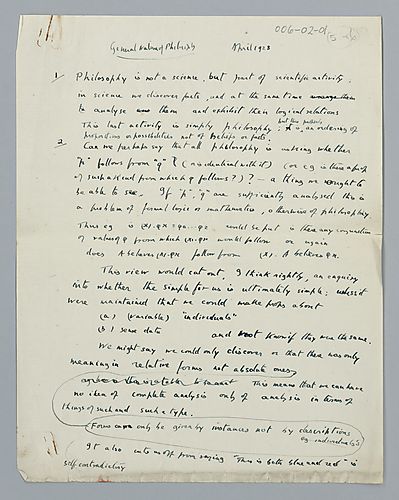 006-02-01
General Nature of Philosophy April 1928
1. Philosophy is not a science, but part of scientific activity;
in science we discover facts, and at the same time arrange them
to analyse them and exhibit their logical relations
but thus perhaps
This last activity is simply philosophy; it is, an ordering of
propositions or possibilities not of beliefs or facts.
2. Can we perhaps say that all philosophy is asking whether
"p" follows from "q"? (or is identical with it) (or e.g. is there a
of such a kind from which q follows?)? — a thing we ought to
be able to see. If "p", "q" are sufficiently analysed this is
a problem of formal logic or mathematics, otherwise of philosophy.
Thus e.g. could be put is there any conjunction
of values of φ from which (x).φx would follow or again
does A believes (x).φx follow from (x). A believes φx.
This view would cut out, I think rightly, an enquiry
into whether the simple for us is ultimately simple; unless it
were maintained that we could make props about
(a) (variable) "individuals"
(b) sense data and not know if they were the same.
We might say we could only discover or that there was only
meaning in relative forms not absolute ones
This means that we can have
no idea of complete analysis only of analysis in terms of
things of such and such a type.
Forms can only be given by instances not by descriptions
e.g. individuals
It also cuts us off from saying "This is both blue and red" is
self contradictory